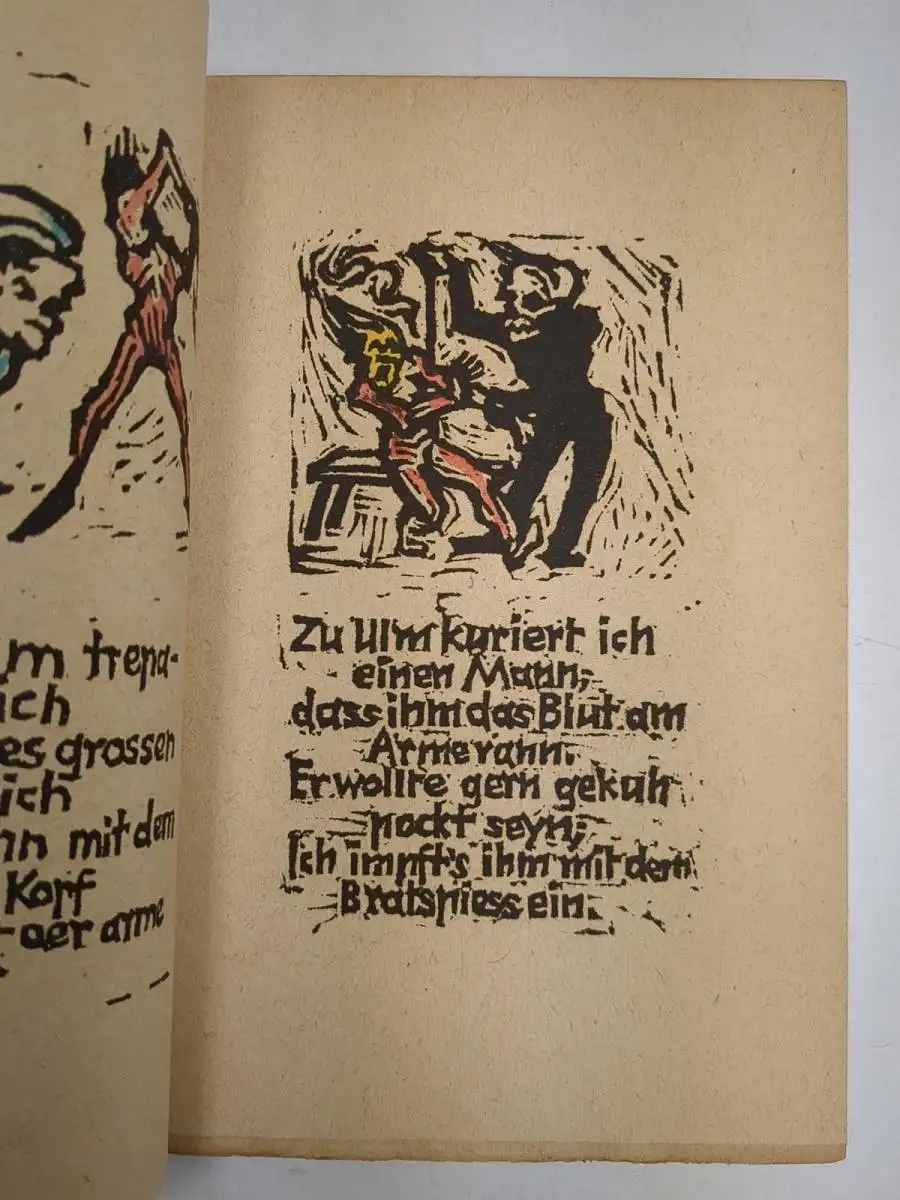 m trepa-
ich
es grossen
ich
nn mit dem
Kopf
der arme
Zu Ulm kuriert ich
einen Mann,
dass ihm das Blut am
Arme rann.
Er wollte gern gekuh
pockt seyn,
Ich impft's ihm mit dem
Bratspiess ein.